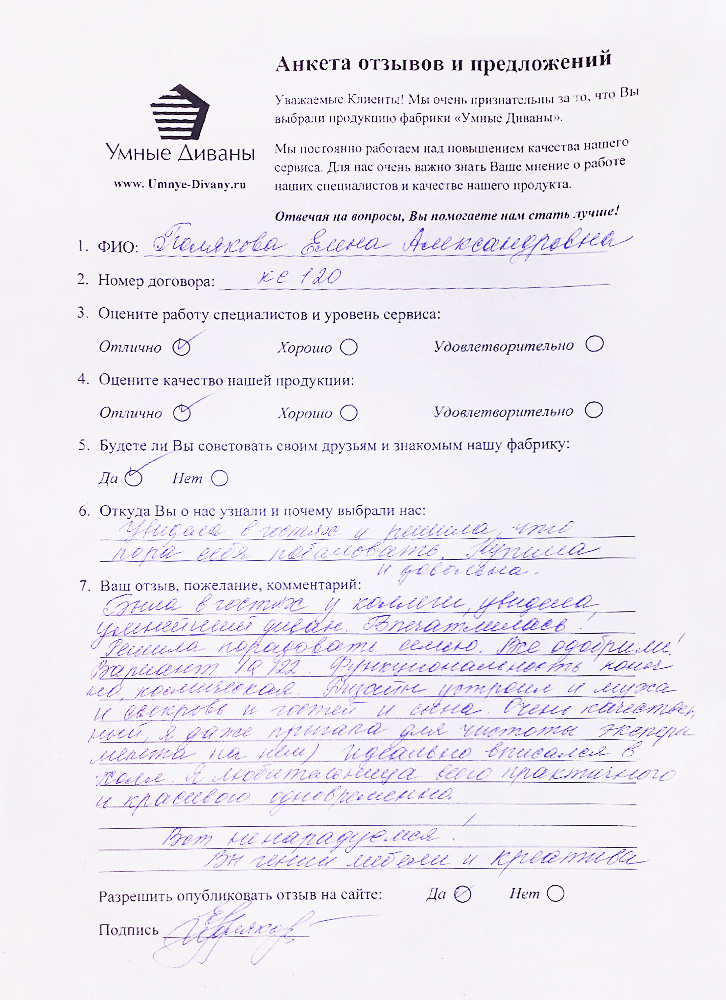 Анкета отзывов и предложений
Умные Диваны
www. Umnye-Divany.ru
Уважаемые Клиенты! Мы очень признательны за то, что Вы
выбрали продукцию фабрики «Умные Диваны».
Мы постоянно работаем над повышением качества нашего
сервиса. Для нас очень важно знать Ваше мнение о работе
наших специалистов и качестве нашего продукта.
Отвечая на вопросы, Вы помогаете нам стать лучше!
1. ФИО: Полякова Елена Александровна
2. Номер договора: кс 120
3. Оцените работу специалистов и уровень сервиса:
Отлично Хорошо Удовлетворительно
4. Оцените качество нашей продукции:
Отлично Хорошо Удовлетворительно
5. Будете ли Вы советовать своим друзьям и знакомым нашу фабрику:
Да Нет
6. Откуда Вы о нас узнали и почему выбрали нас:
Увидела в гостях и решила, что
пора себя побаловать. Купила
и довольна.
7. Ваш отзыв, пожелание, комментарий:
Была в гостях у коллеги, увидела
умнейший диван. Впечатлилась!
Решила порадовать семью. Все одобрили!
Вариант 122. Функциональность конеч
но, космическая. Дизайн устроил и мужа
и свекровь и гостей и сына. Очень качествен
ный, я даже прыгала для чистоты экспери
мента на нем) Идеально вписался в
холл. Я любительница всего практичного
и красивого одновременно.
Вот не нарадуемся!
Вы гении мебели и креатива
Разрешить опубликовать отзыв на сайте: Да Нет
Подпись